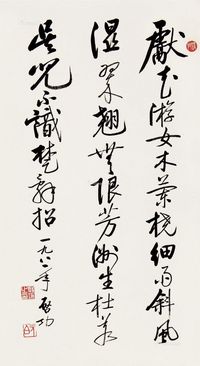 獻花游女木蘭橈細雨斜風
濕翠翹無限芳洲生杜若
吳兒不識楚辭招 一九八二年 啟功